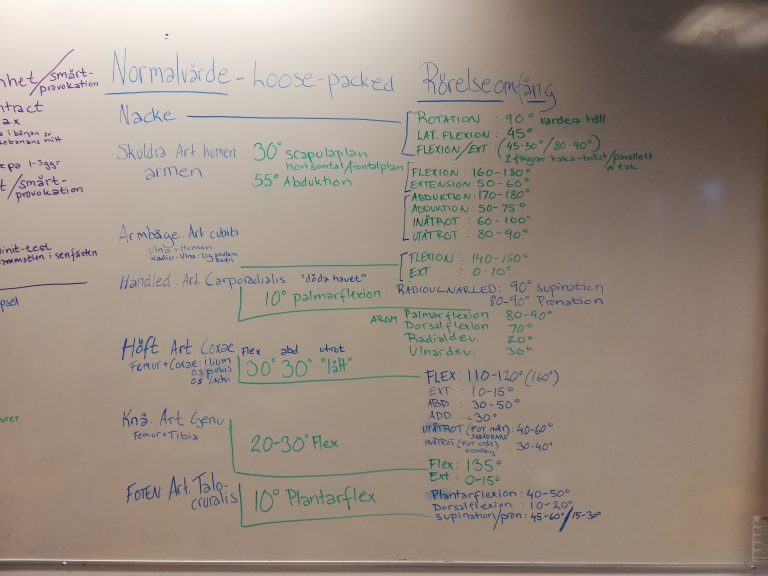 nhet/smärt-
provokation
ntract
ax
a i början av
sebanans mitt
epa 1-3ggr
t/smärt-
provokation
tinit-test
ammation i senfästen
psel
urer
Normalvärde - Loose-packed Rörelseomfång
Nacke
ROTATION : 90° vardera håll
LAT. FLEXION : 45°
FLEXION/EXT : (45-50°/80-90°)
2 fingrar haka-bröst/parallell
m tak
Skuldra. Art. humeri
armen
30° scapulaplan
horisontal/frontalplan
55° Abduktion
FLEXION : 160-180°
EXTENSION : 50-60°
ABDUKTION : 170-180°
ADDUKTION : 50-75°
INÅTROT : 60-100°
UTÅTROT : 80-90°
Armbåge. Art cubiti
Ulna + Humeri
Radio-Ulna: Lig anulare
Radii
FLEXION : 140-150°
EXT : 0-10°
Handled. Art. Carporadialis "döda havet"
10° palmarflexion
RADIOULNARLED: 90° supination
80-90° Pronation
AROM Palmarflexion 80-90°
Dorsalflexion 70°
Radialdev. 20°
Ulnardev. 30°
Höft. Art Coxae Flex abd utrot
Femur + Coxae: ilium
os pubis
os ischii
30° 30° "lätt"
FLEX : 110-120° (160°)
EXT : 10-15°
ABD : 30-50°
ADD : 30°
UTÅTROT (FOT INÅT) : 40-60°
SKRÄDDARE
INÅTROT (FOT UTÅT) : 30-40°
Knä. Art Genu
Femur + Tibia
20-30° Flex
Flex : 135°
Ext : 0-15°
FOTEN Art. Talo-
cruralis
10° Plantarflex
Plantarflexion : 40-50°
Dorsalflexion : 10-20°
supination/pron: 45-60°/15-30°